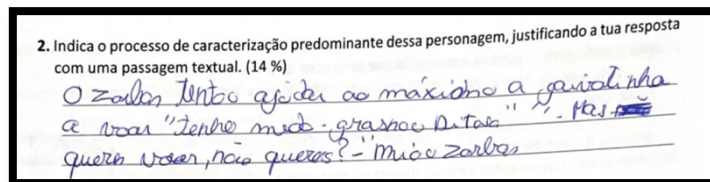 2. Indica o processo de caracterização predominante dessa personagem, justificando a tua resposta
com uma passagem textual. (14 %)
O zorbas tentou ajudar ao máximo a gaivotinha
a voar "Tenho medo - grasnou Ditosa" ". Mas
queres voar, não queres? - miou zorbas